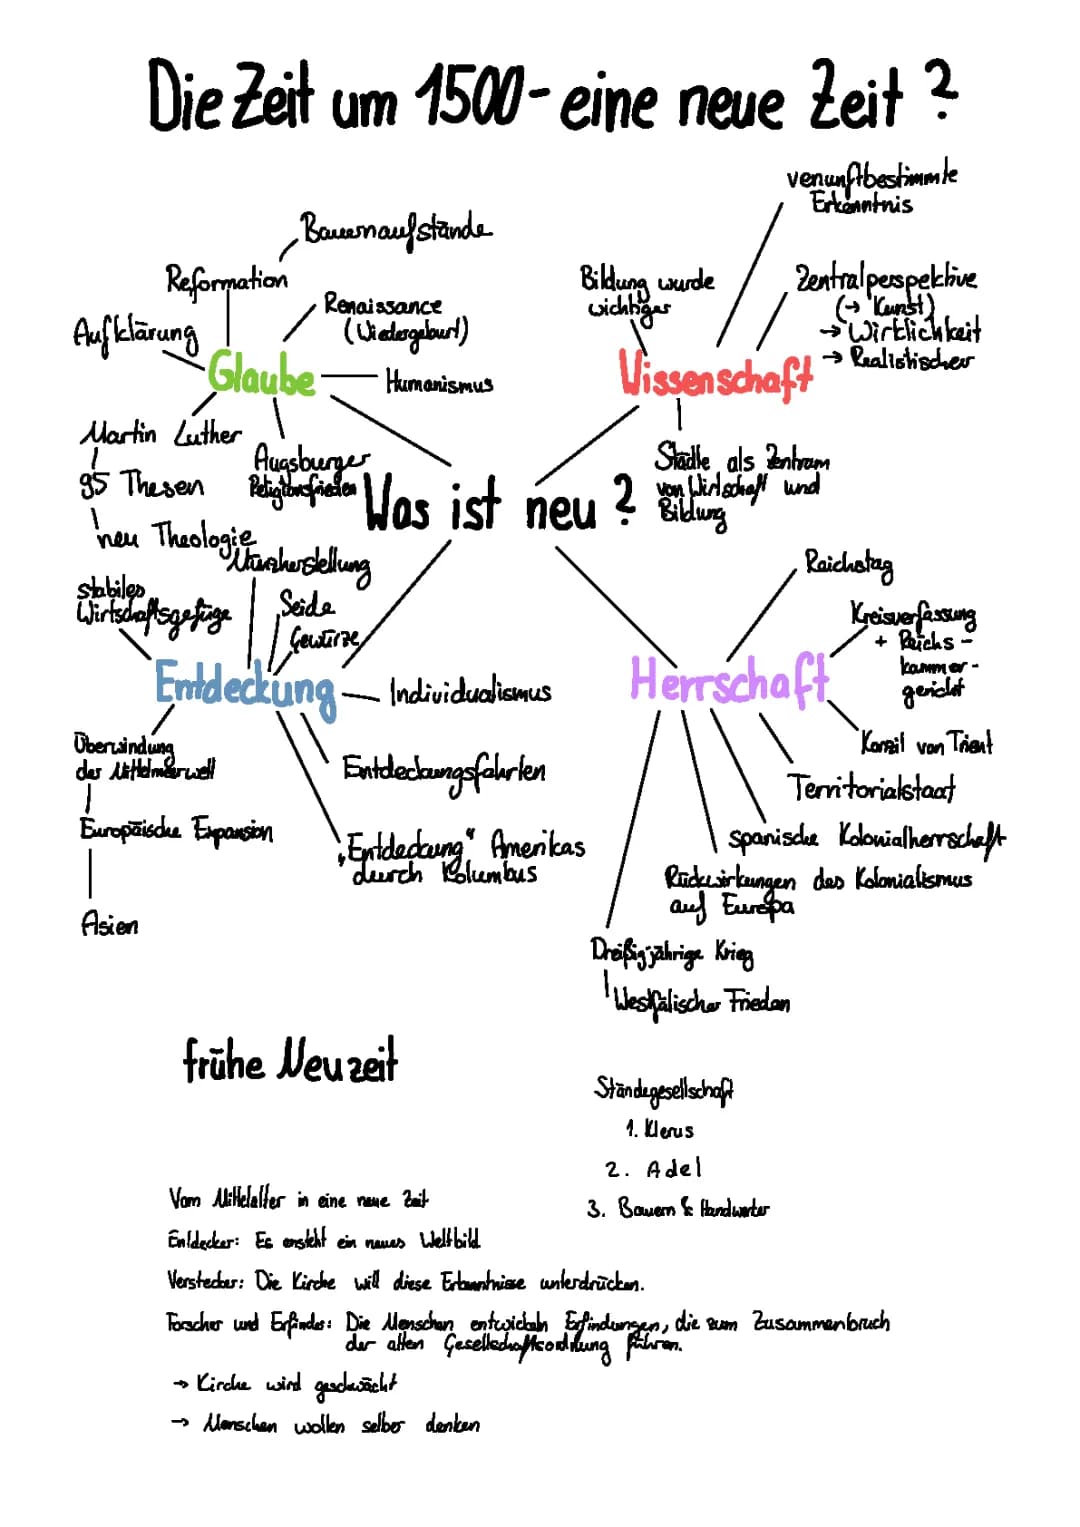 Die Zeit um 1500 - eine neue Zeit ?
venunftbestimmte
Erkenntnis
Bauernaufstände
Reformation
Renaissance
(Wiedergeburt)
Aufklärung
Glaube
Humanismus
Martin Luther
95 Thesen
neu Theologie
Augsburger
Religionsfrieden
Bildung wurde
wichtiger
Zentralperspektive
(→ Kunst)
→ Wirklichkeit
→ Realistischer
Wissenschaft
Städte als Zentrum
von Wirtschaft und
Bildung
Was ist neu ?
Münzherstellung
stabiles
Wirtschaftsgefüge
Seide
Gewürze
Entdeckung
Individualismus
Überwindung
der Mittelmeerwelt
Europäische Expansion
Asien
Entdeckungsfahrten
„Entdeckung“ Amerikas
durch Kolumbus
Reichstag
Kreisverfassung
+ Reichs-
kammer-
gericht
Herrschaft
Konzil von Trient
Territorialstaat
spanische Kolonialherrschaft
Rückwirkungen des Kolonialismus
auf Europa
Dreißigjährige Krieg
Westfälischer Frieden
frühe Neuzeit
Ständegesellschaft
1. Klerus
2. Adel
3. Bauern & Handwerker
Vom Mittelalter in eine neue Zeit
Entdecker: Es ensteht ein neues Weltbild
Verstecker: Die Kirche will diese Erkenntnisse unterdrücken.
Forscher und Erfinder: Die Menschen entwickeln Erfindungen, die zum Zusammenbruch
der alten Gesellschaftsordnung führen.
→ Kirche wird geschwächt
→ Menschen wollen selber denken